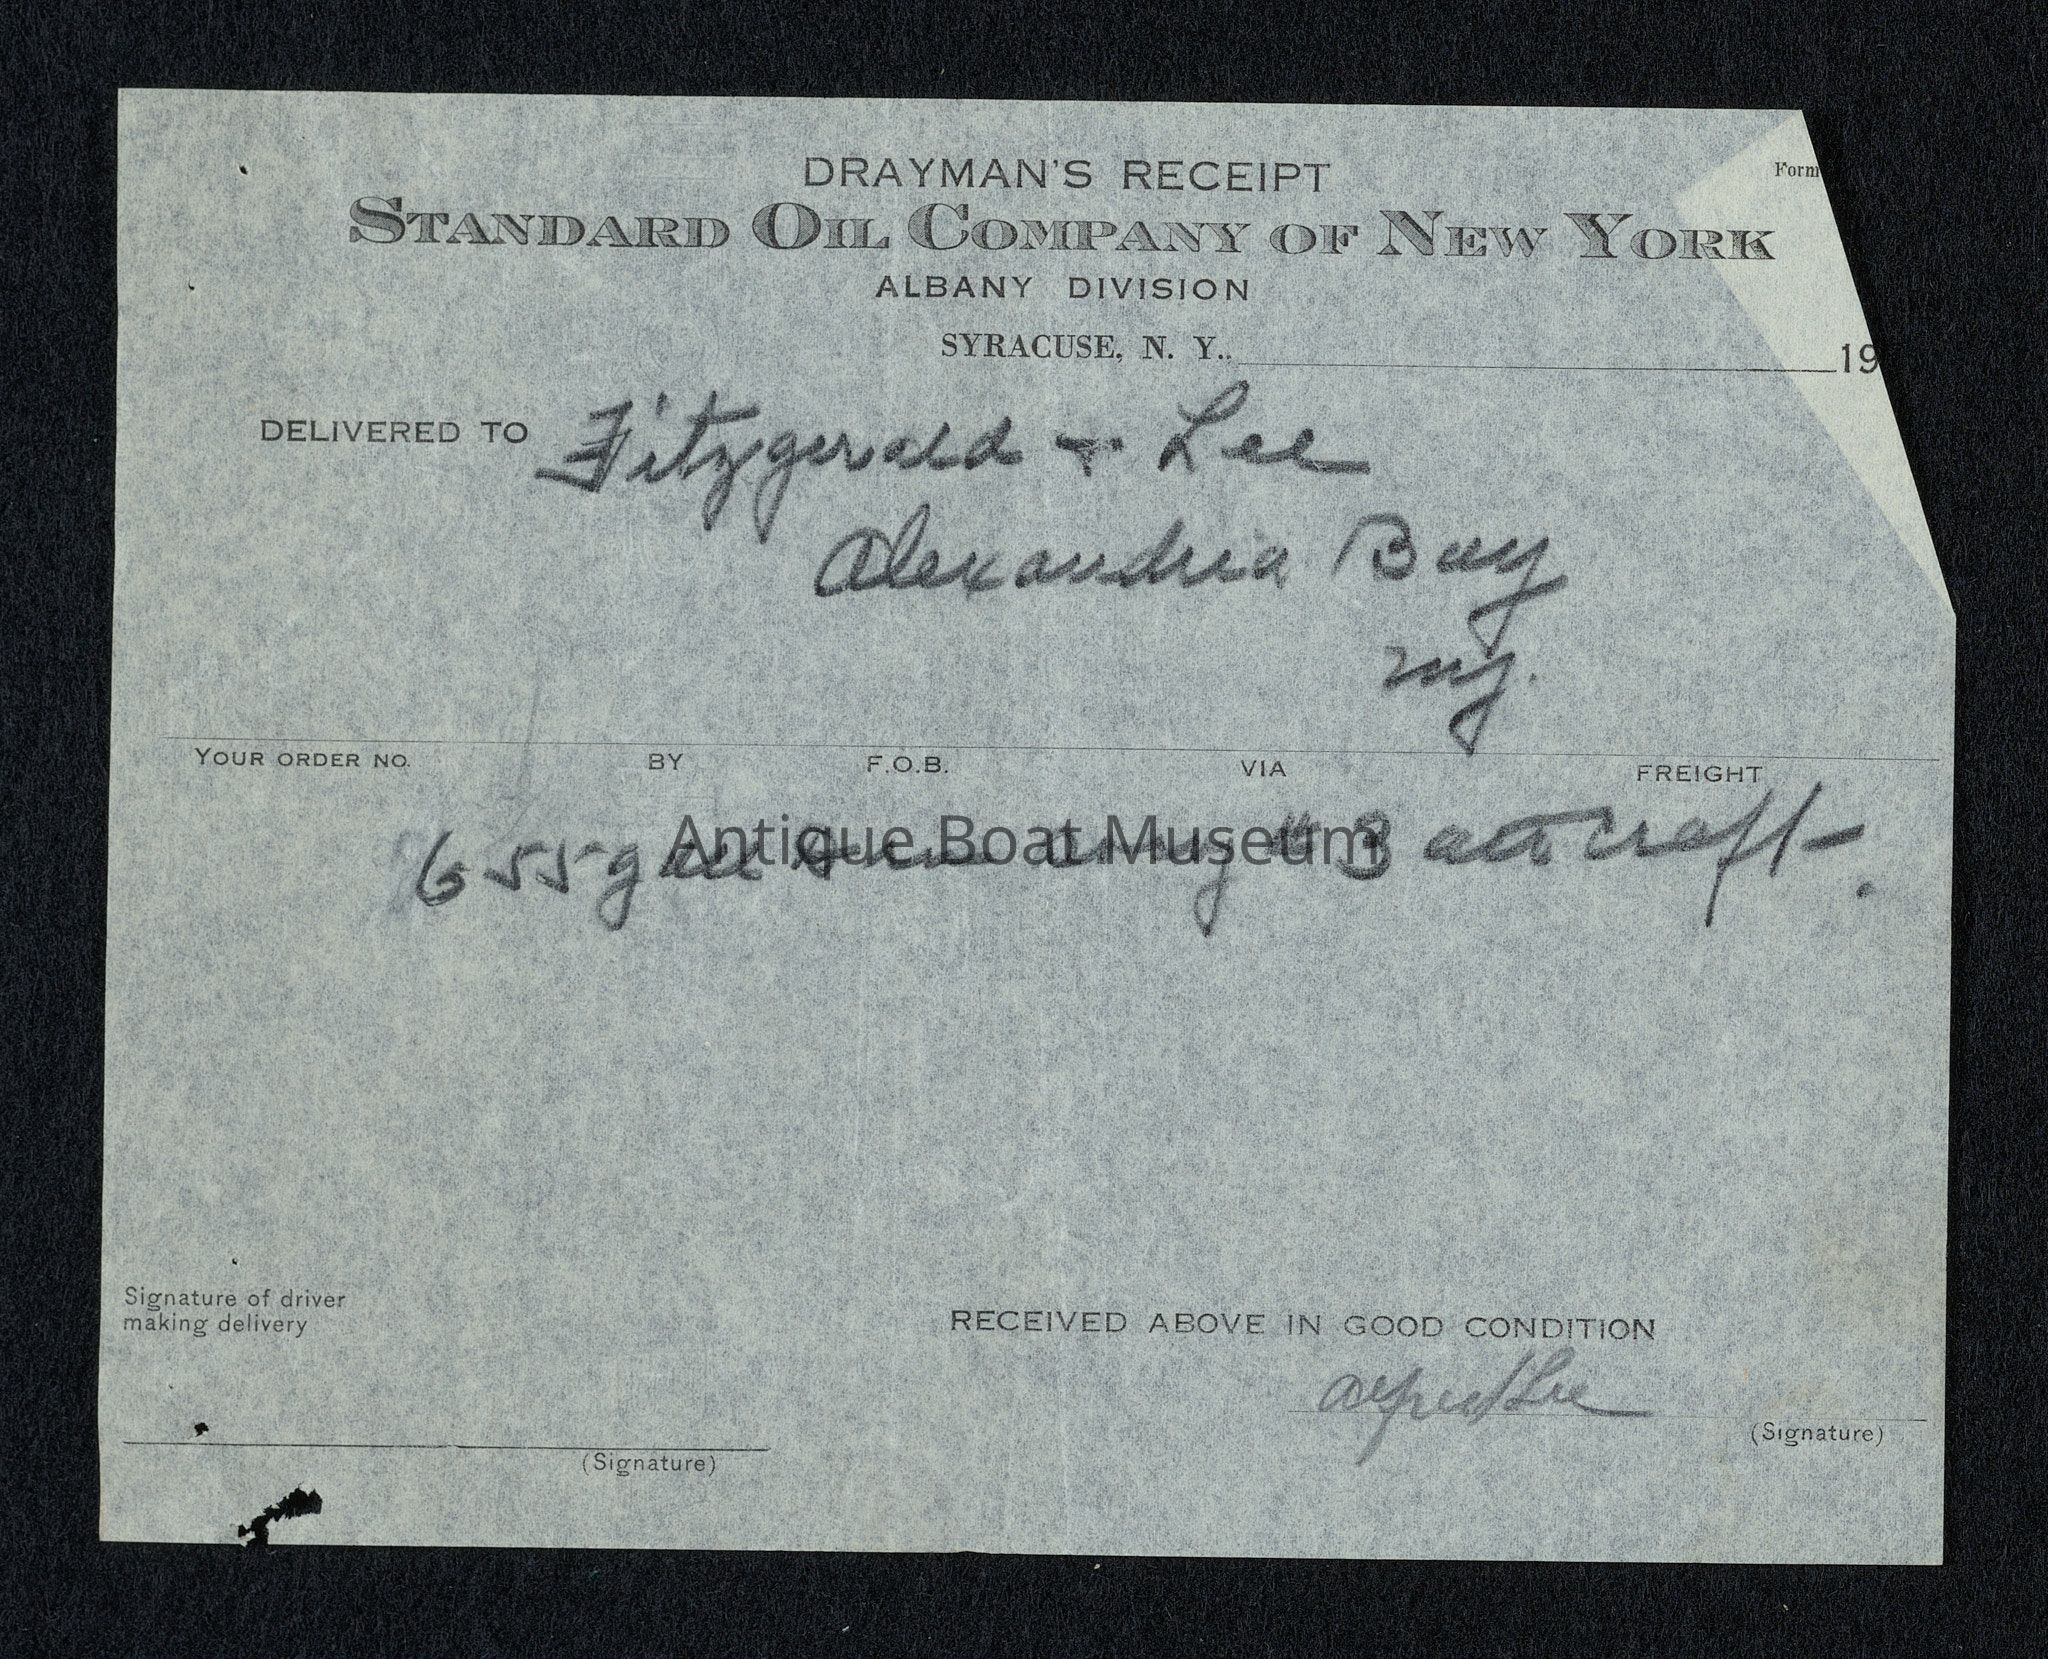 Form
DRAYMAN'S RECEIPT
STANDARD OIL COMPANY OF NEW YORK
ALBANY DIVISION
SYRACUSE, N. Y.. 19
DELIVERED TO Fitzgerald + Lee
Alexandria Bay
NY.
YOUR ORDER NO. BY F.O.B. VIA FREIGHT
6 55 gal #3
Antique Boat Museum
Signature of driver
making delivery
RECEIVED ABOVE IN GOOD CONDITION
Alfred Lee
(Signature)
(Signature)